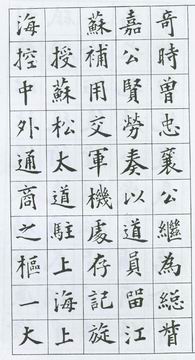 奇時曾忠襄公繼為緫督
嘉公賢勞奏以道員畱江
蘇補用交軍機處存記旋
授蘇松太道駐上海上
海控中外通商之樞一大